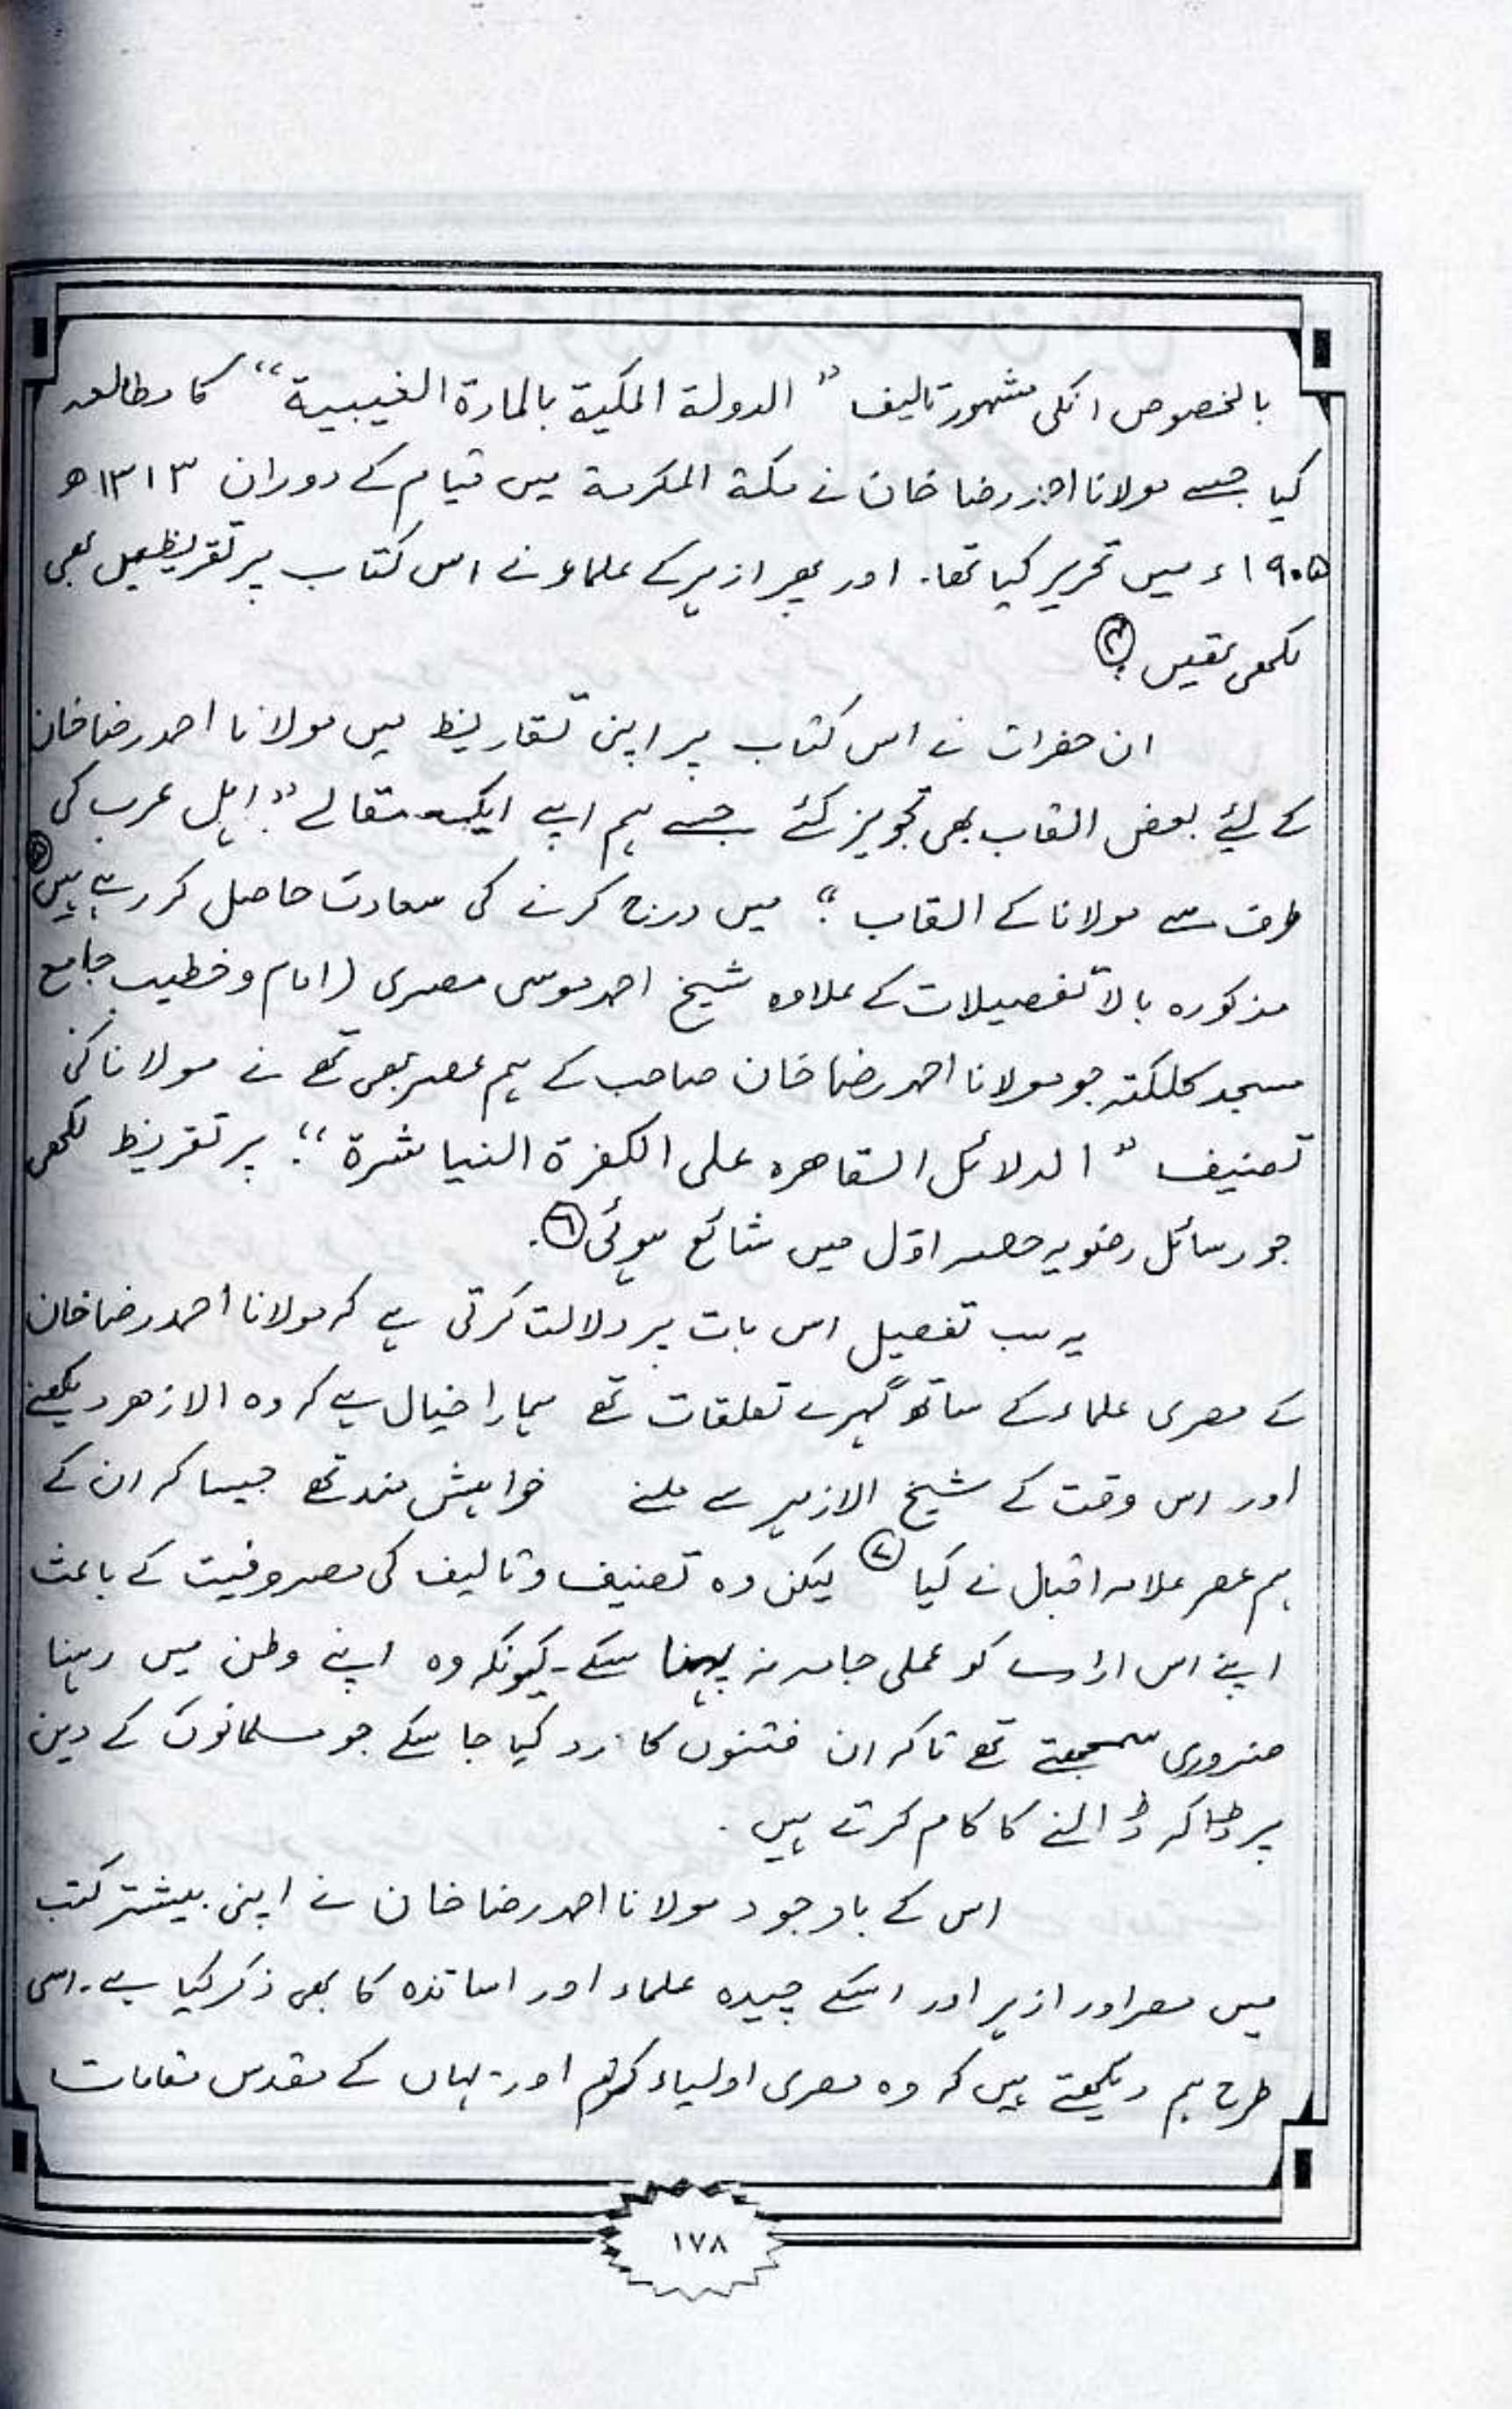 بالخصوص انکی مشہور تالیف ” الدولۃ المکیۃ بالمادۃ الغیبیۃ “ کا مطالعہ
کیا جسے مولانا احمد رضا خان نے مکۃ المکرمۃ میں قیام کے دوران ۱۳۱۳ھ
۱۹۰۵ء میں تحریر کیا تھا۔ اور پھر ازہر کے علماء نے اس کتاب پر تقریظیں بھی
لکھی تھیں ۔
ان حضرات نے اس کتاب پر اپنی تقاریظ میں مولانا احمد رضا خان
کے لیئے بعض القاب بھی تجویز کئے جسے ہم اپنے ایک مقالے ” اہل عرب کی
طرف سے مولانا کے القاب “ میں درج کرنے کی سعادت حاصل کر رہے ہیں ⑤
مذکورہ بالا تفصیلات کے علاوہ شیخ احمد موسی مصری (امام و خطیب جامع
مسجد کلکتہ جو مولانا احمد رضا خان صاحب کے ہم عصر بھی تھے نے مولانا کی
تصنیف ” الدلائل القاھرہ علی الکفرۃ النیاشرۃ “ پر تقریظ لکھی
جو رسائل رضویہ حصہ اوّل میں شائع ہوئی ⑥۔
یہ سب تفصیل اس بات پر دلالت کرتی ہے کہ مولانا احمد رضا خان
کے مصری علماء کے ساتھ گہرے تعلقات تھے ہمارا خیال ہے کہ وہ الازھر دیکھنے
اور اس وقت کے شیخ الازہر سے ملنے خواہش مند تھے جیسا کہ ان کے
ہم عصر علامہ اقبال نے کیا ⑦ لیکن وہ تصنیف و تالیف کی مصروفیت کے باعث
اپنے اس ارادے کو عملی جامہ نہ پہنا سکے ۔ کیونکہ وہ اپنے وطن میں رہنا
ضروری سمجھتے تھے تاکہ ان فتنوں کا رد کیا جا سکے جو مسلمانوں کے دین
پر ڈاکہ ڈالنے کا کام کرتے ہیں ۔
اس کے باوجود مولانا احمد رضا خان نے اپنی بیشتر کتب
میں مصر اور ازہر اور اسکے چیدہ علماء اور اساتذہ کا بھی ذکر کیا ہے ۔ اسی
طرح ہم دیکھتے ہیں کہ وہ مصری اولیاء کرام اور وہاں کے مقدس مقامات
۱۷۸